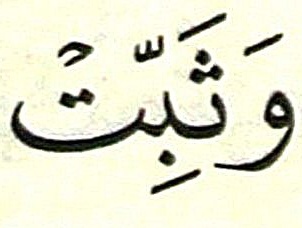 وَثَبِّتۡ